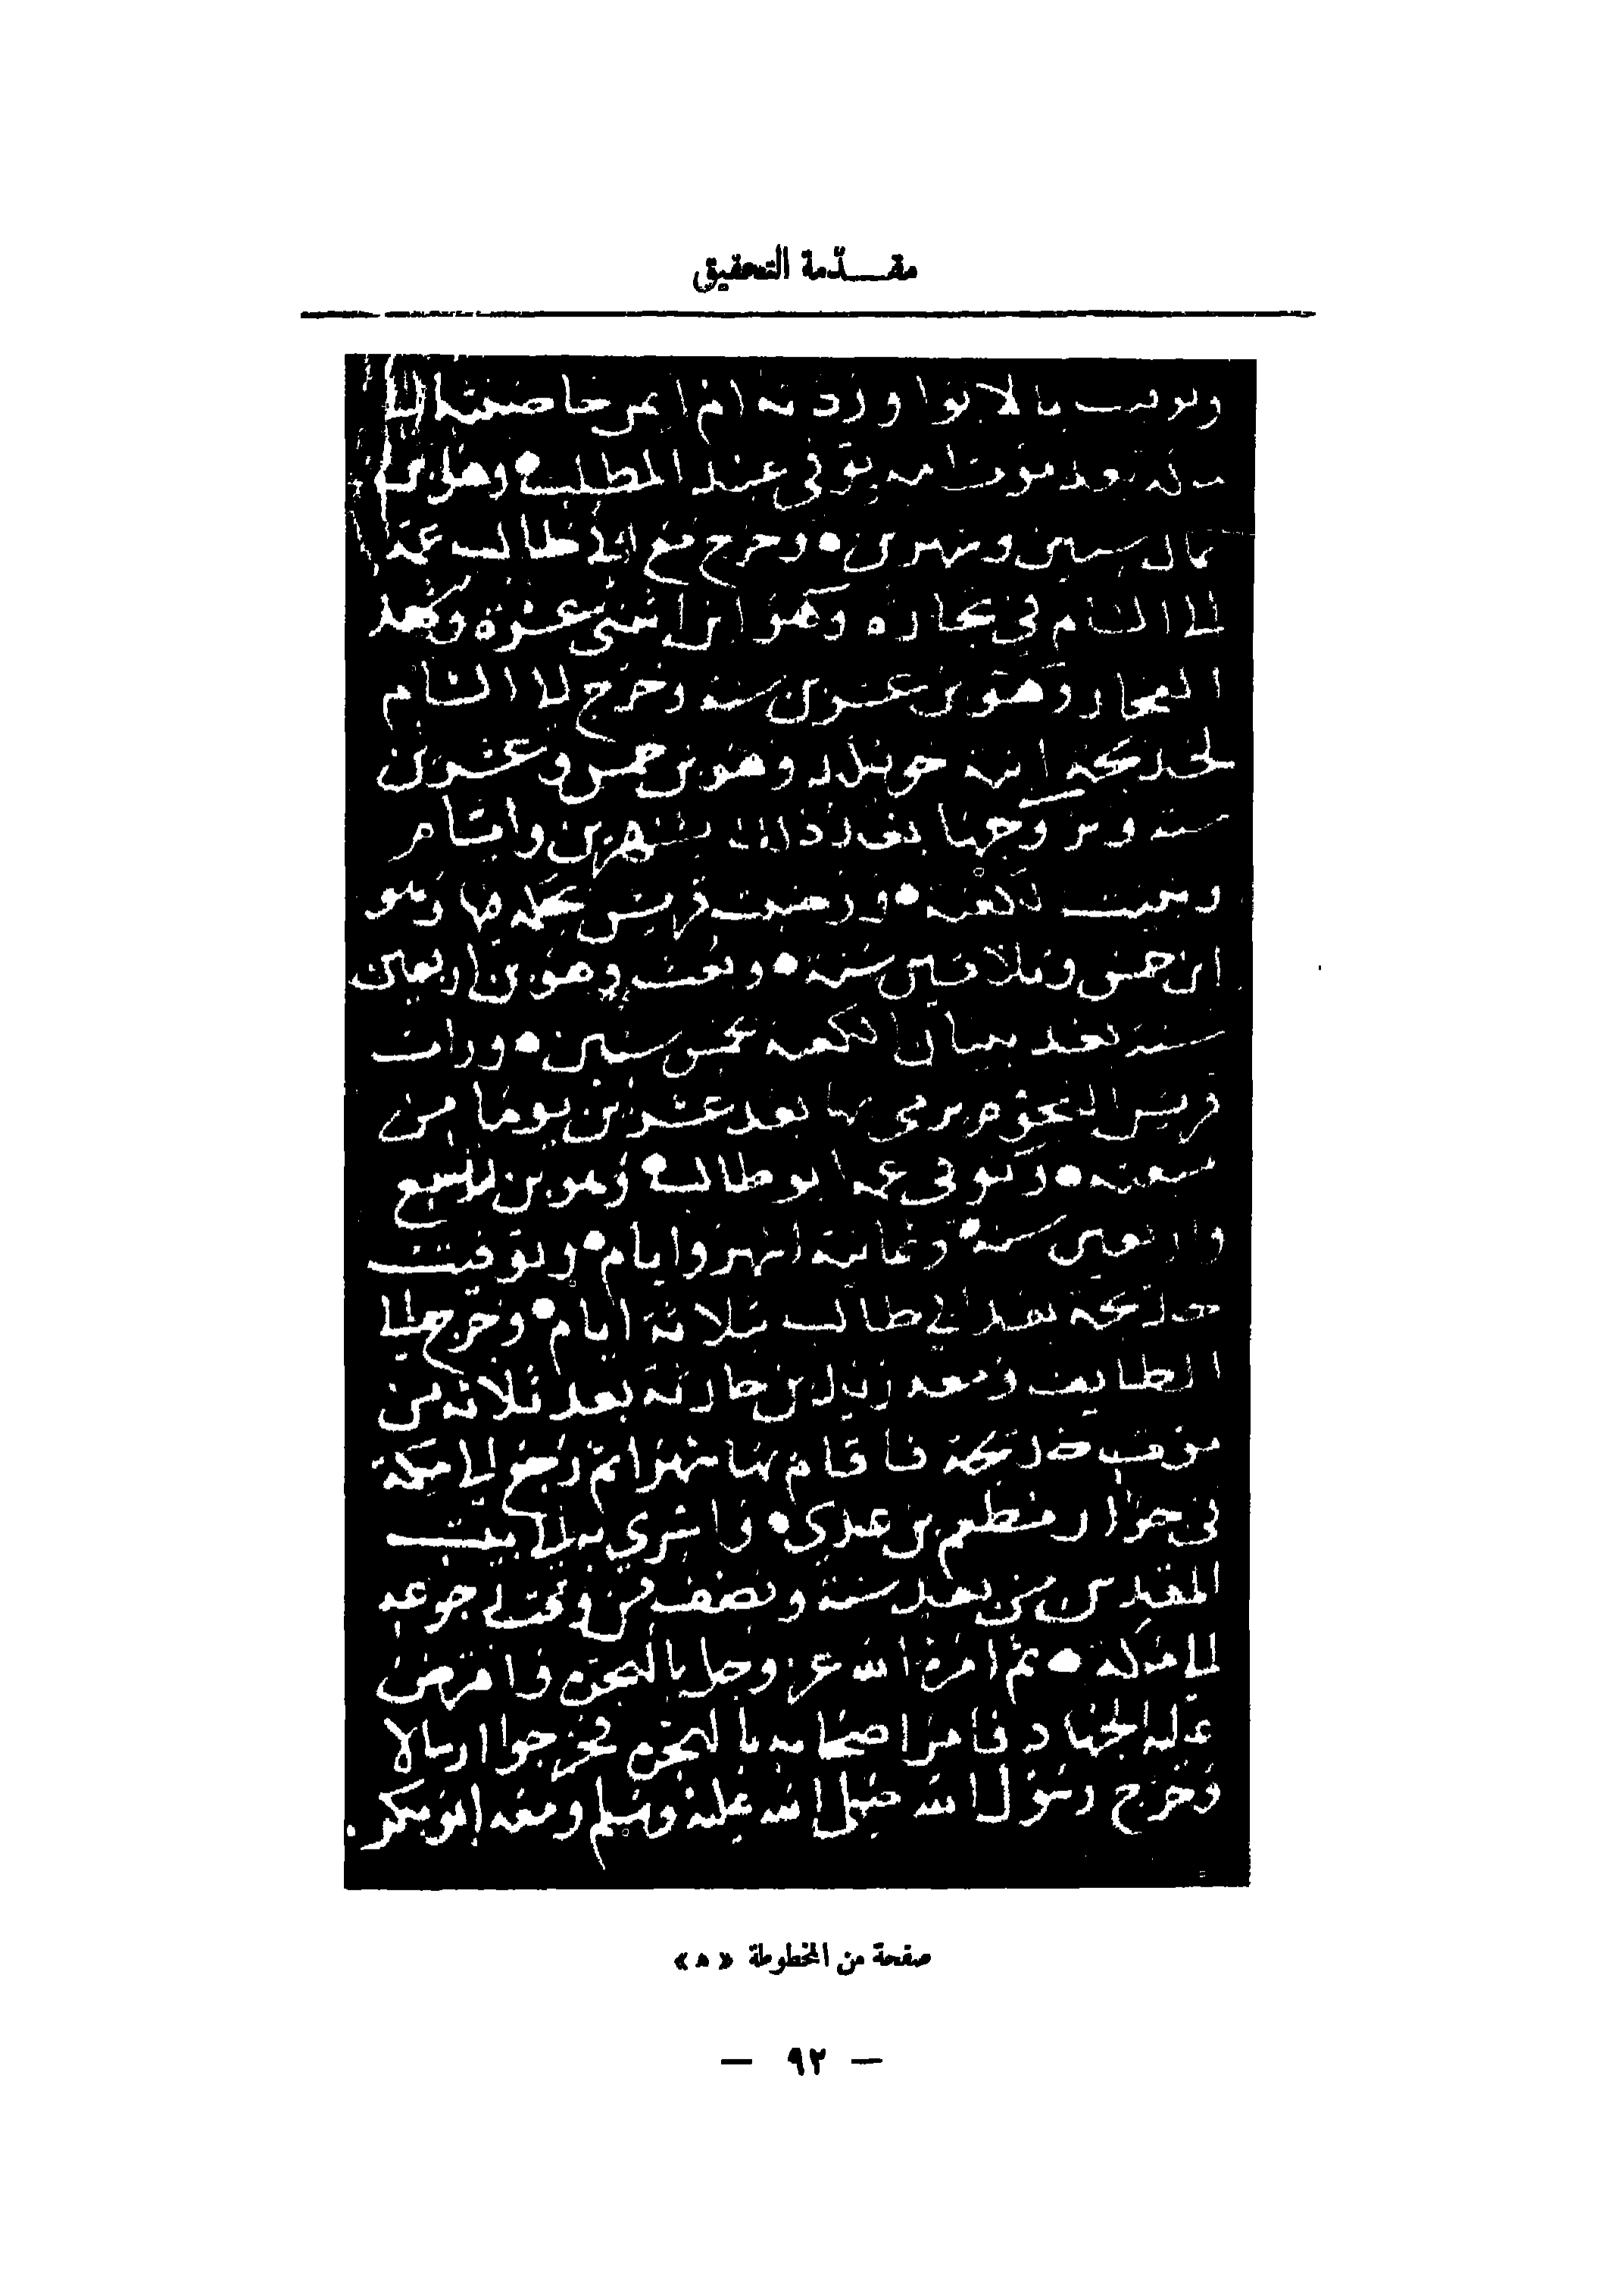 مقـــدّمة التحقيق
وتوفيت بالابوا وردته ام ايمن حاضنته الى
مكه بعد موت امه توفي عبد المطلب • وهو بن
ثمان سنين وشهرين • وخرج مع ابي طالب عمه
الى الشام في تجاره وهو ابن اثنتي عشره وشهد
الفجار وهو بن عشرين سنه وخرج الى الشام
لخديجة ابنه خويلد وهو بن خمس وعشرين
سنه وتزوجها بعد ذلك بشهرين وايام
وبنيت الكعبه • ورضيت قريش بحكمه فيها وهو
ابن خمس وثلاثين سنة • وبعث وهو بن اربعين
سنة بعد بنيان الكعبه بخمس سنين • ورات
قريش النجوم يرمى بها بعد عشرين يوما من
مبعثه • وتوفي عمه ابو طالب • وهو بن
واربعين سنه • وثمانية اشهر وايام • وتوفيت
خديجة بعد ابي طالب بثلاثة ايام • وخرج الى
الطايف ومعه زيد بن حارثة بعد ثلاثه من
موت خديجة فاقام بها شهرا ثم رجع الى مكة
في جوار مطعم بن عدي • واسري به الى بيت
المقدس من بعد سنة ونصف من وقت رجوعه
الى مكه • ثم امره الله عز وجل بالهجرة وافترض
عليه الجهاد فامر اصحابه بالهجرة فخرجوا ارسالا
وخرج رسول الله صلى الله عليه وسلم ومعه ابو بكر
صفحة من المخطوطة « هـ »
— ٩٢ —